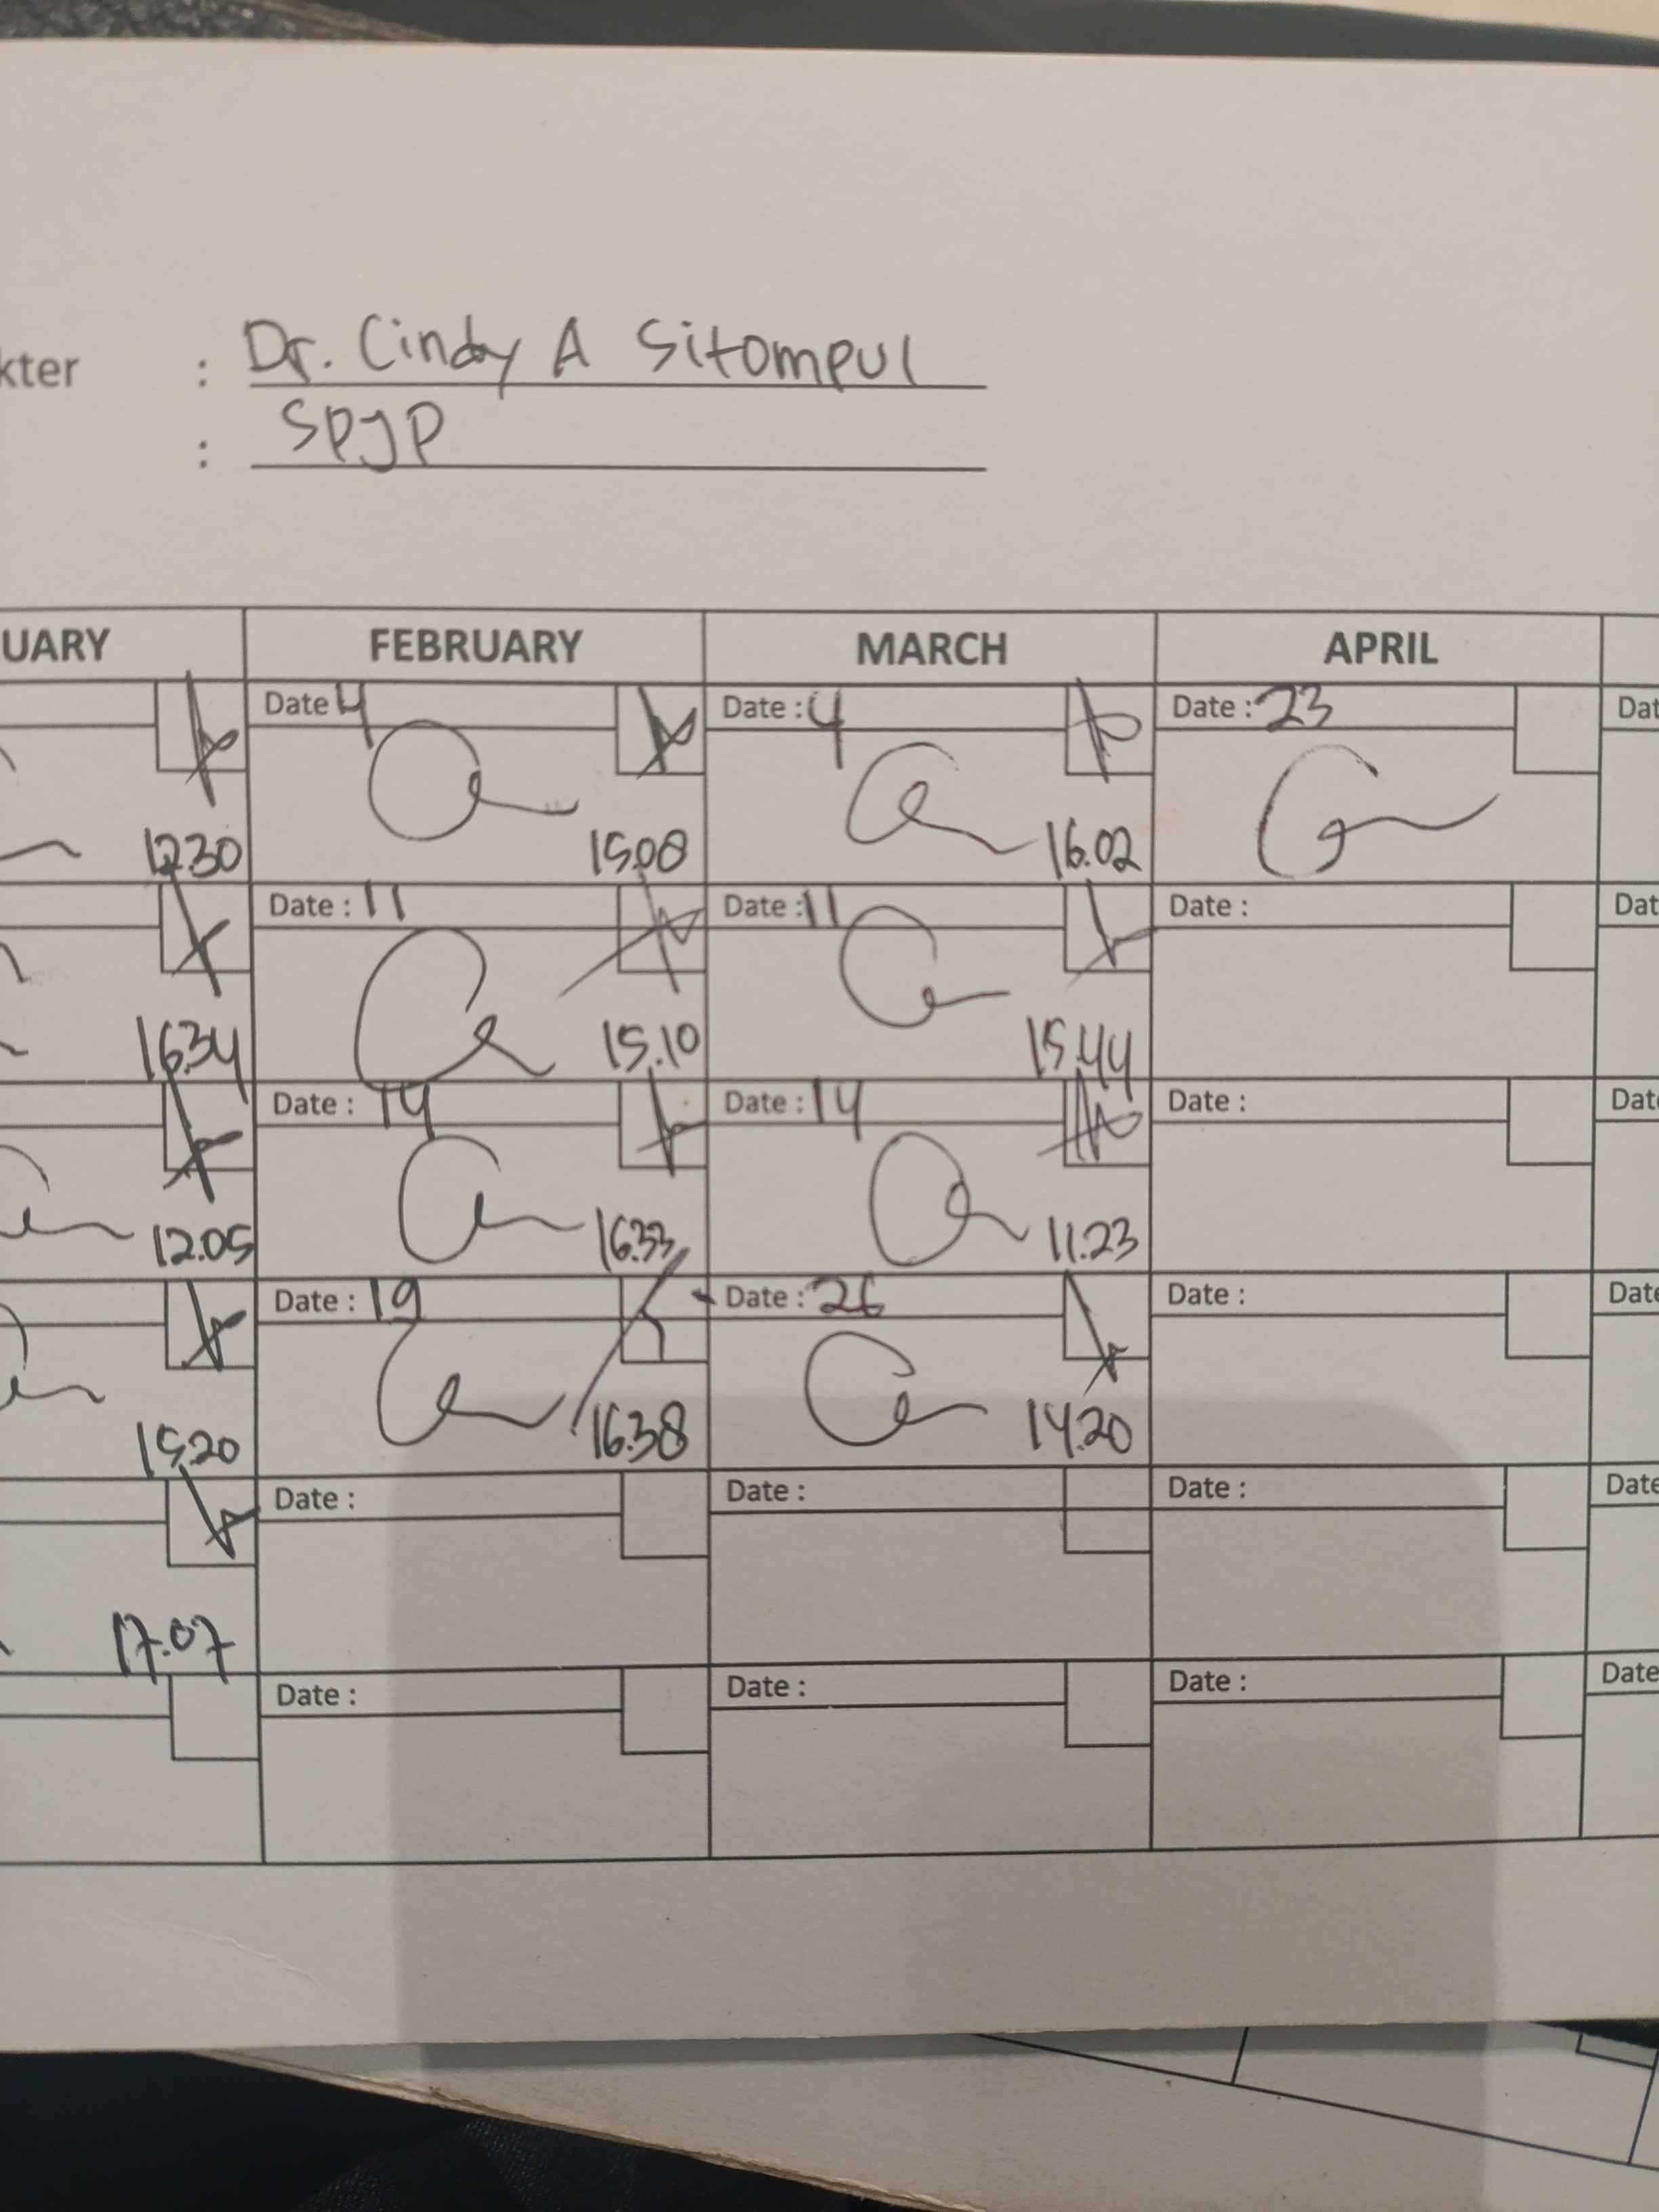 kter : Dr. Cindy A Sitompul
: SpJP
UARY FEBRUARY MARCH APRIL
Date 4 Date : 4 Date : 23 Dat
12.30 15.08 16.02
Date : 11 Date : 11 Date : Dat
16.34 15.10 15.44
Date : 14 Date : 14 Date : Date
12.05 16.33 11.23
Date : 19 Date : 26 Date : Date
15.20 16.38 14.20
Date : Date : Date : Date
17.07
Date : Date : Date : Date